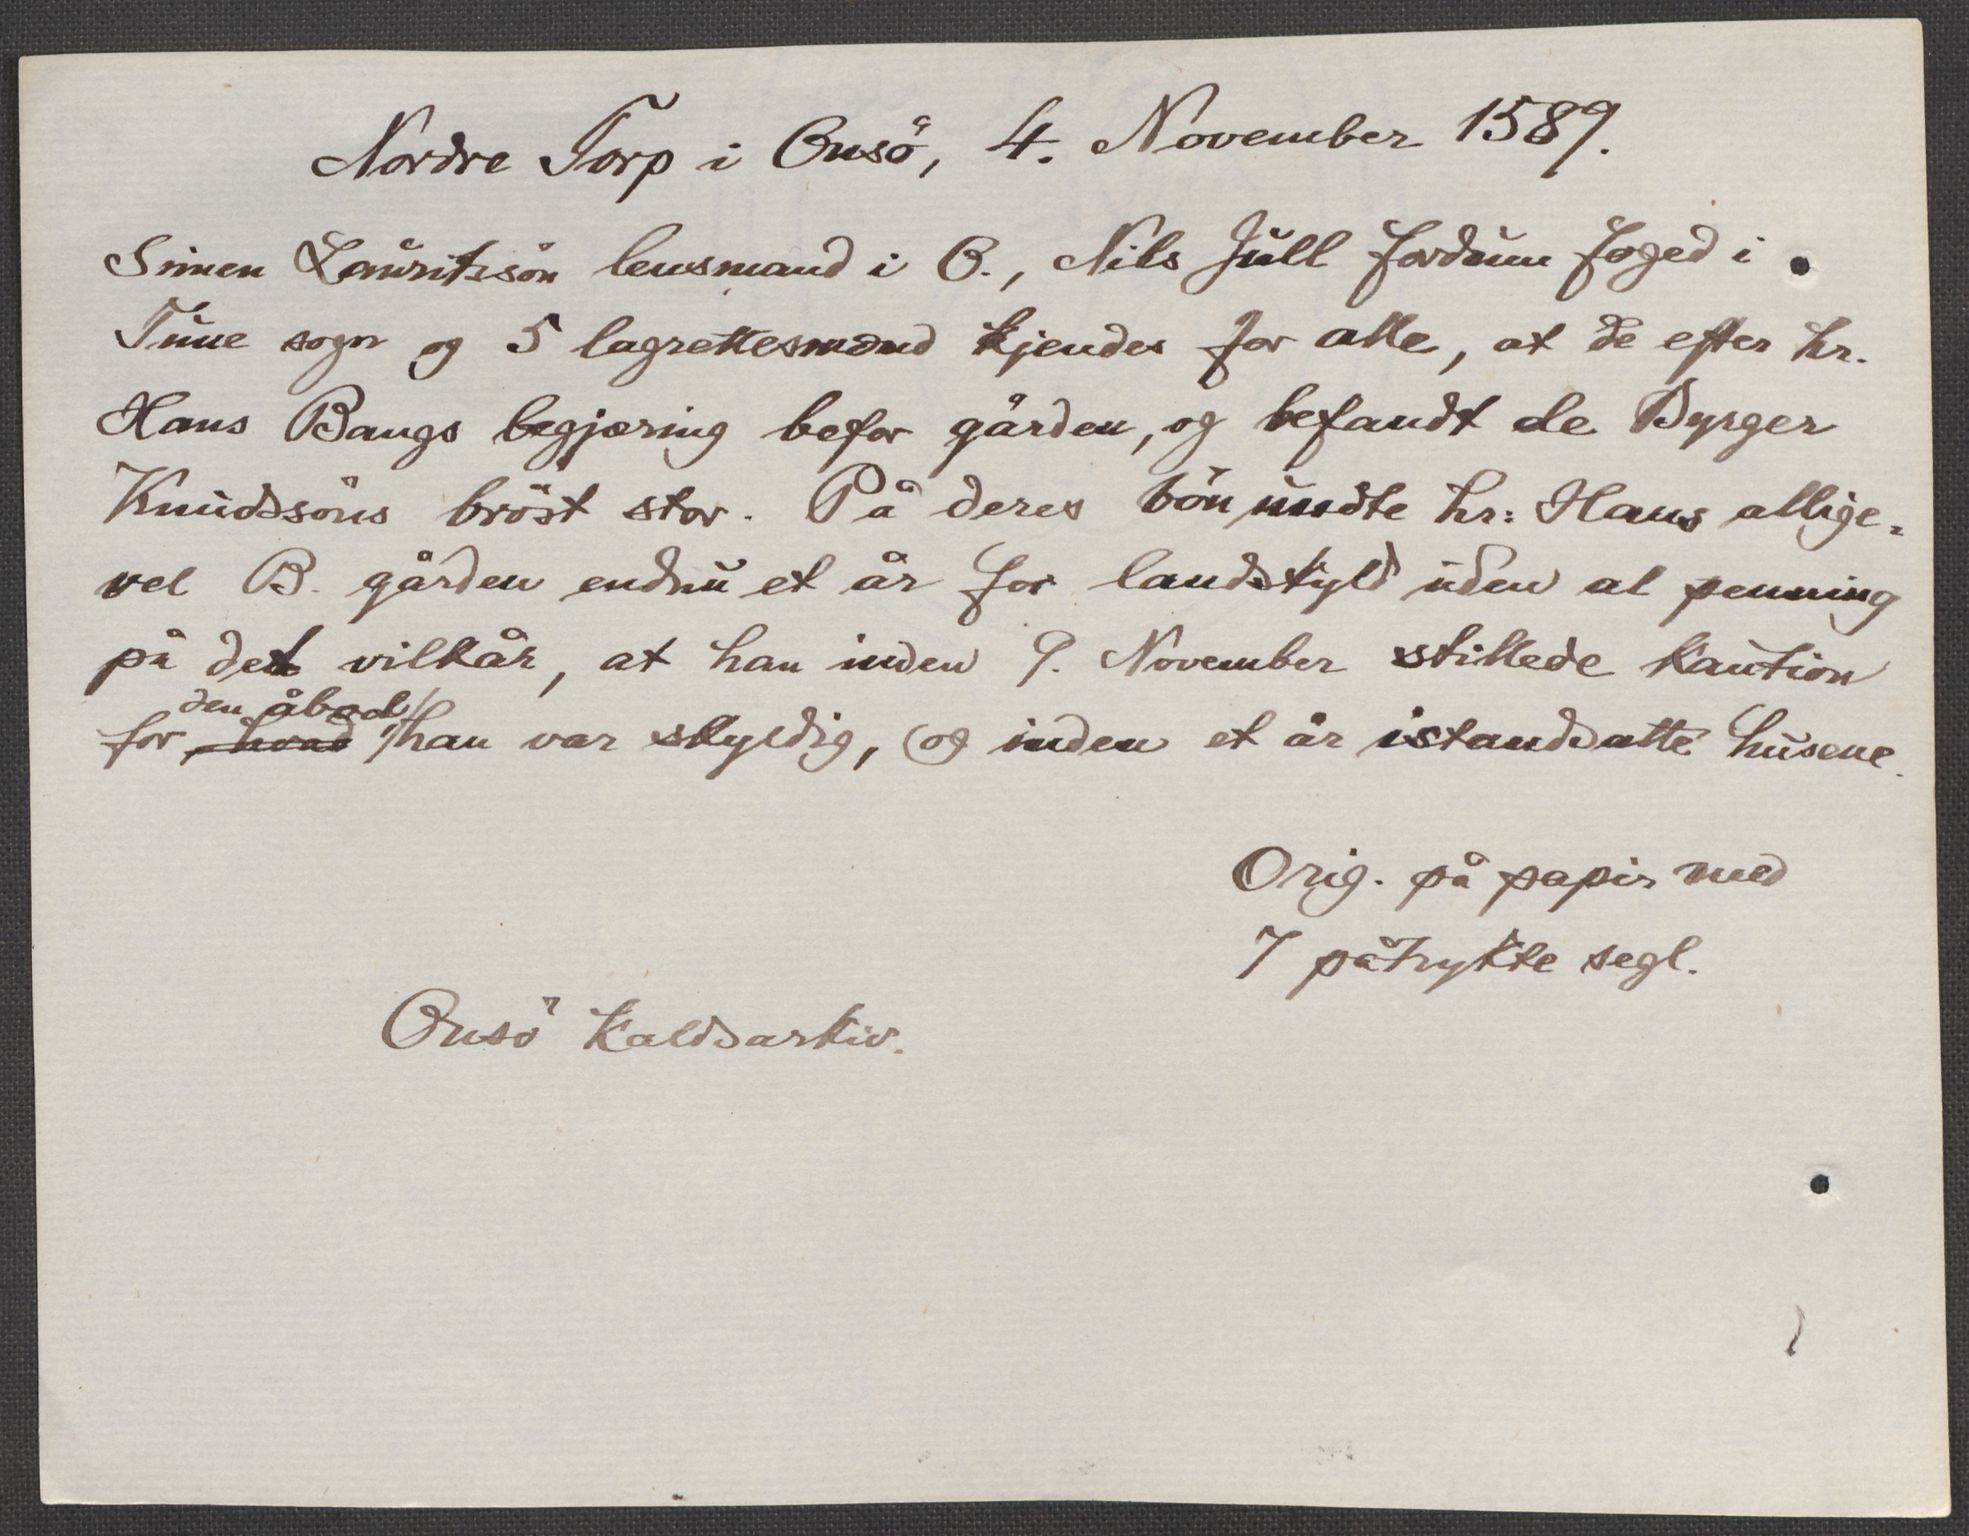 Nordre Torp i Onsö, 4. November 1589.
Simen Lauritssön lensmand i O., Nils Jull fordum foged i
Tune sogn og 5 lagrettesmænd kjendes for alle, at de efter hr.
Hans Bangs begjæring befor gården, og befandt de Byrger
Knudssöns bröst stor. På deres bön undte hr: Hans allige-
vel B. gården endnu et år for landskyld uden al penning
på det vilkår, at han inden 9. November stillede kaution
den åbod
for hvad han var skyldig, og inden et år istandsatte husene.
Orig. på papir med
7 påtrykte segl.
Onsö kaldsarkiv.